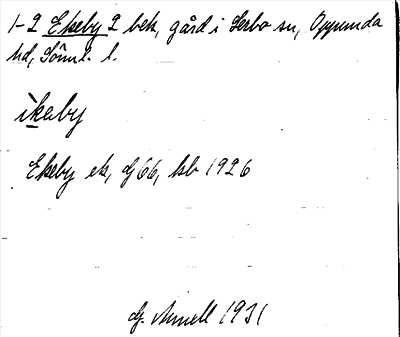 1-2 Ekeby 2 bek, gård i Lerbo sn, Oppunda
hd, Söml. l.
ìkeby
Ekeby ek, dj 66, kb 1926
G. Annell 1931